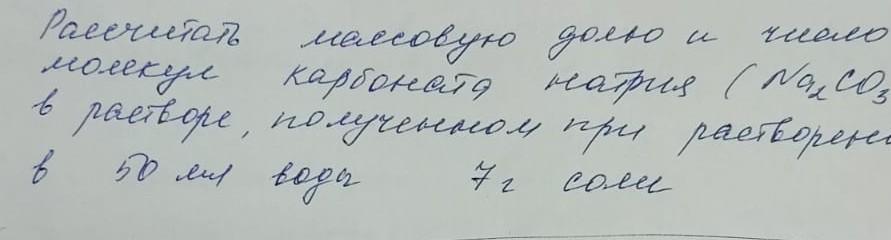 Рассчитать массовую долю и число
молекул карбоната натрия (Na₂CO₃
в растворе, полученном при растворени
в 50 мл воды 7г соли